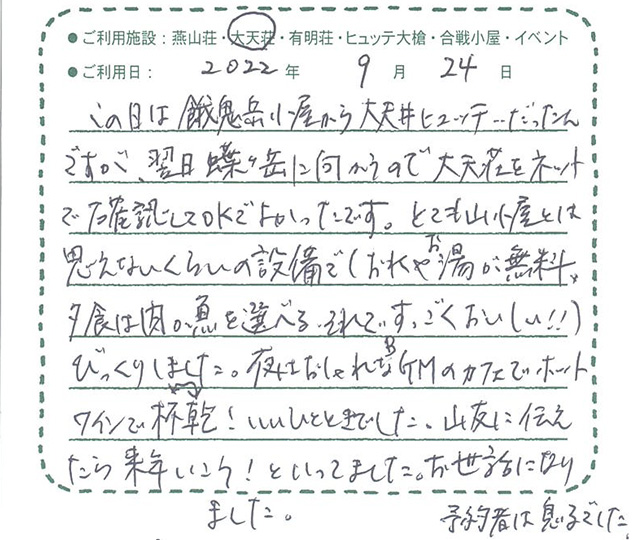 ●ご利用施設：燕山荘・大天荘・有明荘・ヒュッテ大槍・合戦小屋・イベント
●ご利用日： 2022 年 9 月 24 日
この日は餓鬼岳小屋から大天井ヒュッテ…だったん
ですが、翌日蝶ヶ岳に向かうので大天荘をネット
で確認してOKでよかったです。とても山小屋とは
思えないくらいの設備で(お水やお湯が無料、
夕食は肉か魚を選べる、それでいてすっごくおいしい!!)
びっくりしました。夜はおしゃれなBGMのカフェでホット
ワインで杯乾！いいひとときでした。山友に伝え
たら来年いこう！といってました。お世話になり
ました。
予約者は息子でした。